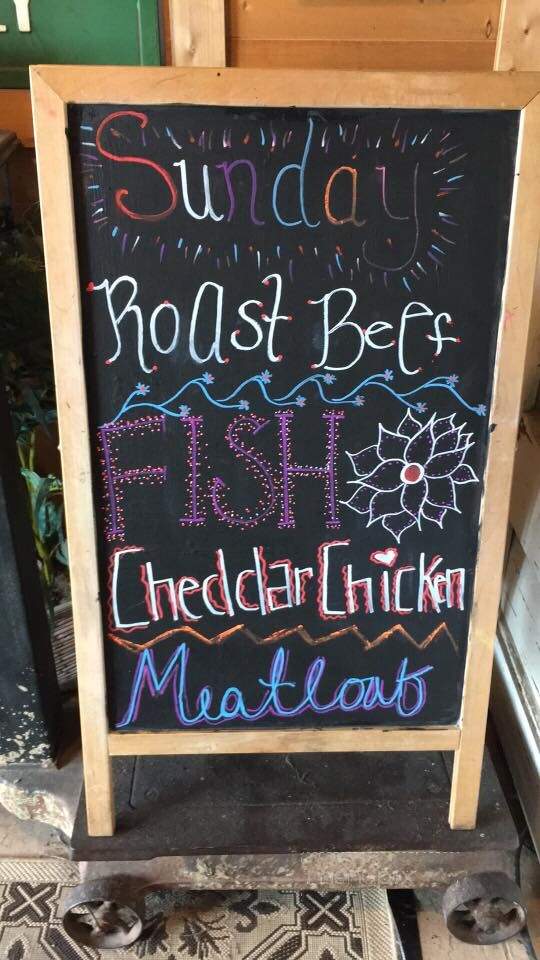 Sunday
Roast Beef
FISH
Cheddar Chicken
Meatloaf